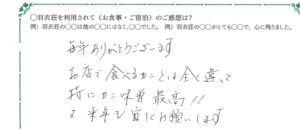 〇羽衣荘を利用されて（お食事・ご宿泊）のご感想は？
例）羽衣荘の〇〇は他の〇〇にはなく、〇〇でした。 例）羽衣荘の〇〇がとても〇〇で、心に残りました。
毎年ありがとうございます
お店で食べるカニとは全く違って
特にカニ味噌最高!!
又来年も宜しくお願いします